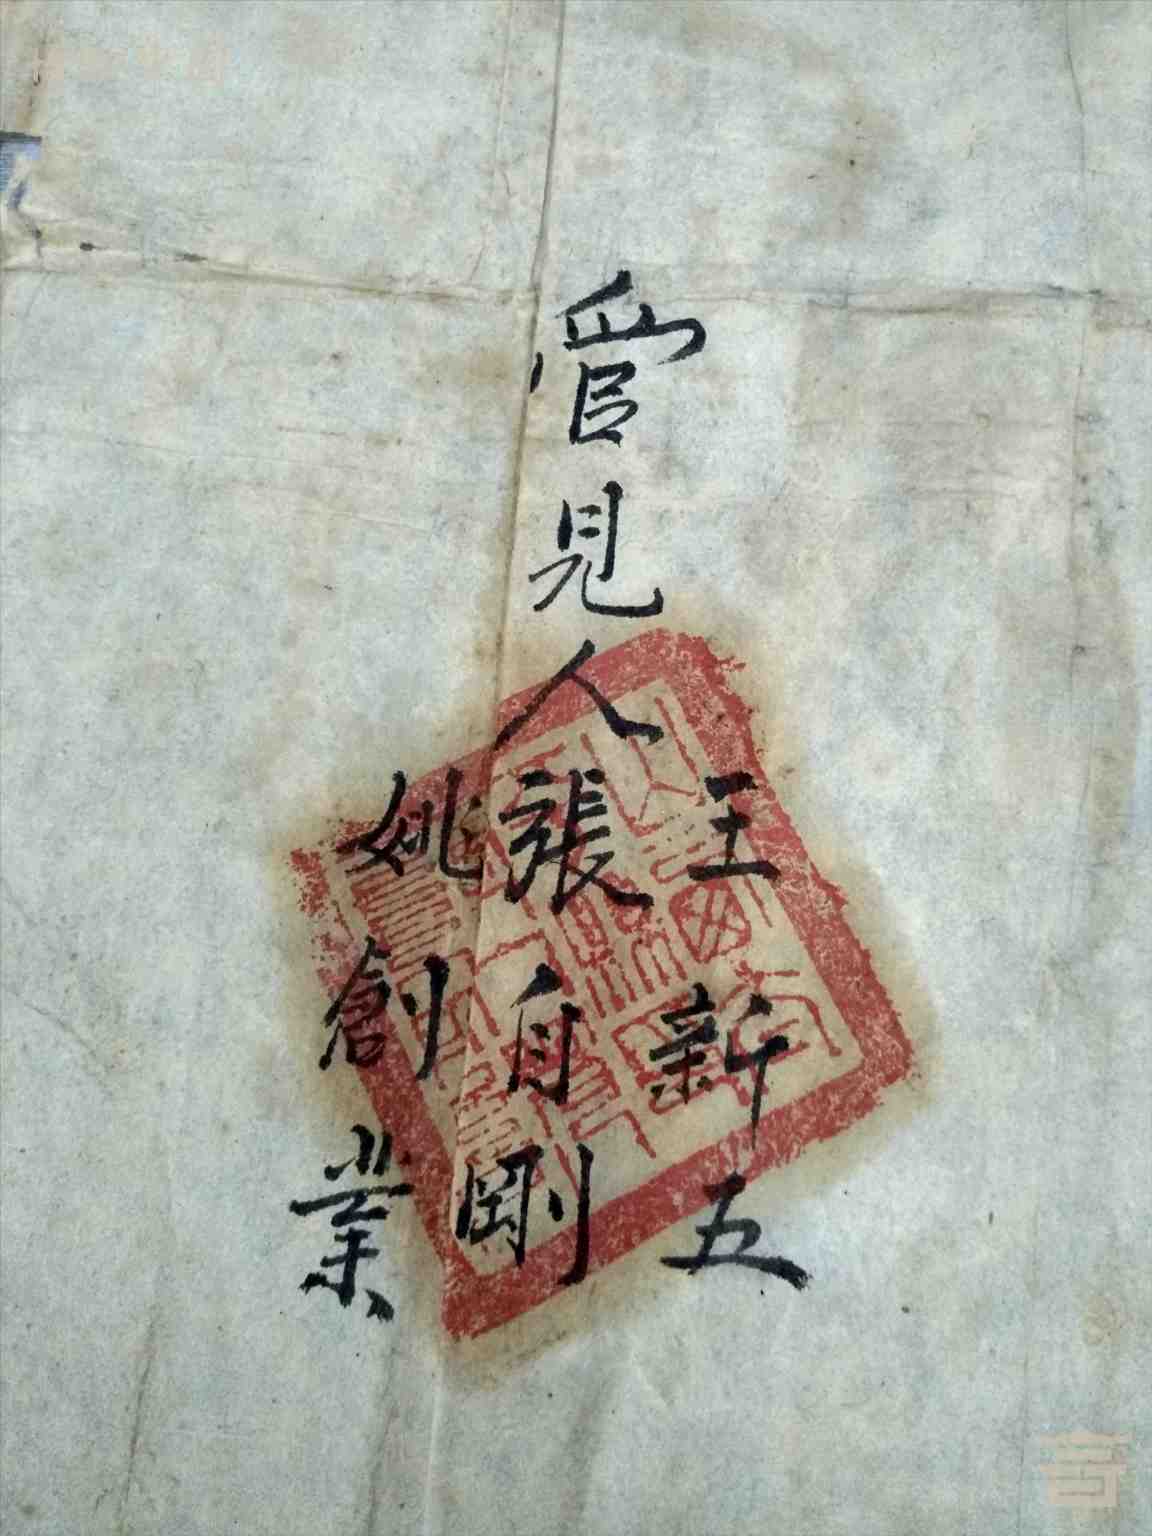 管見人
王新五
張自剛
姚創業